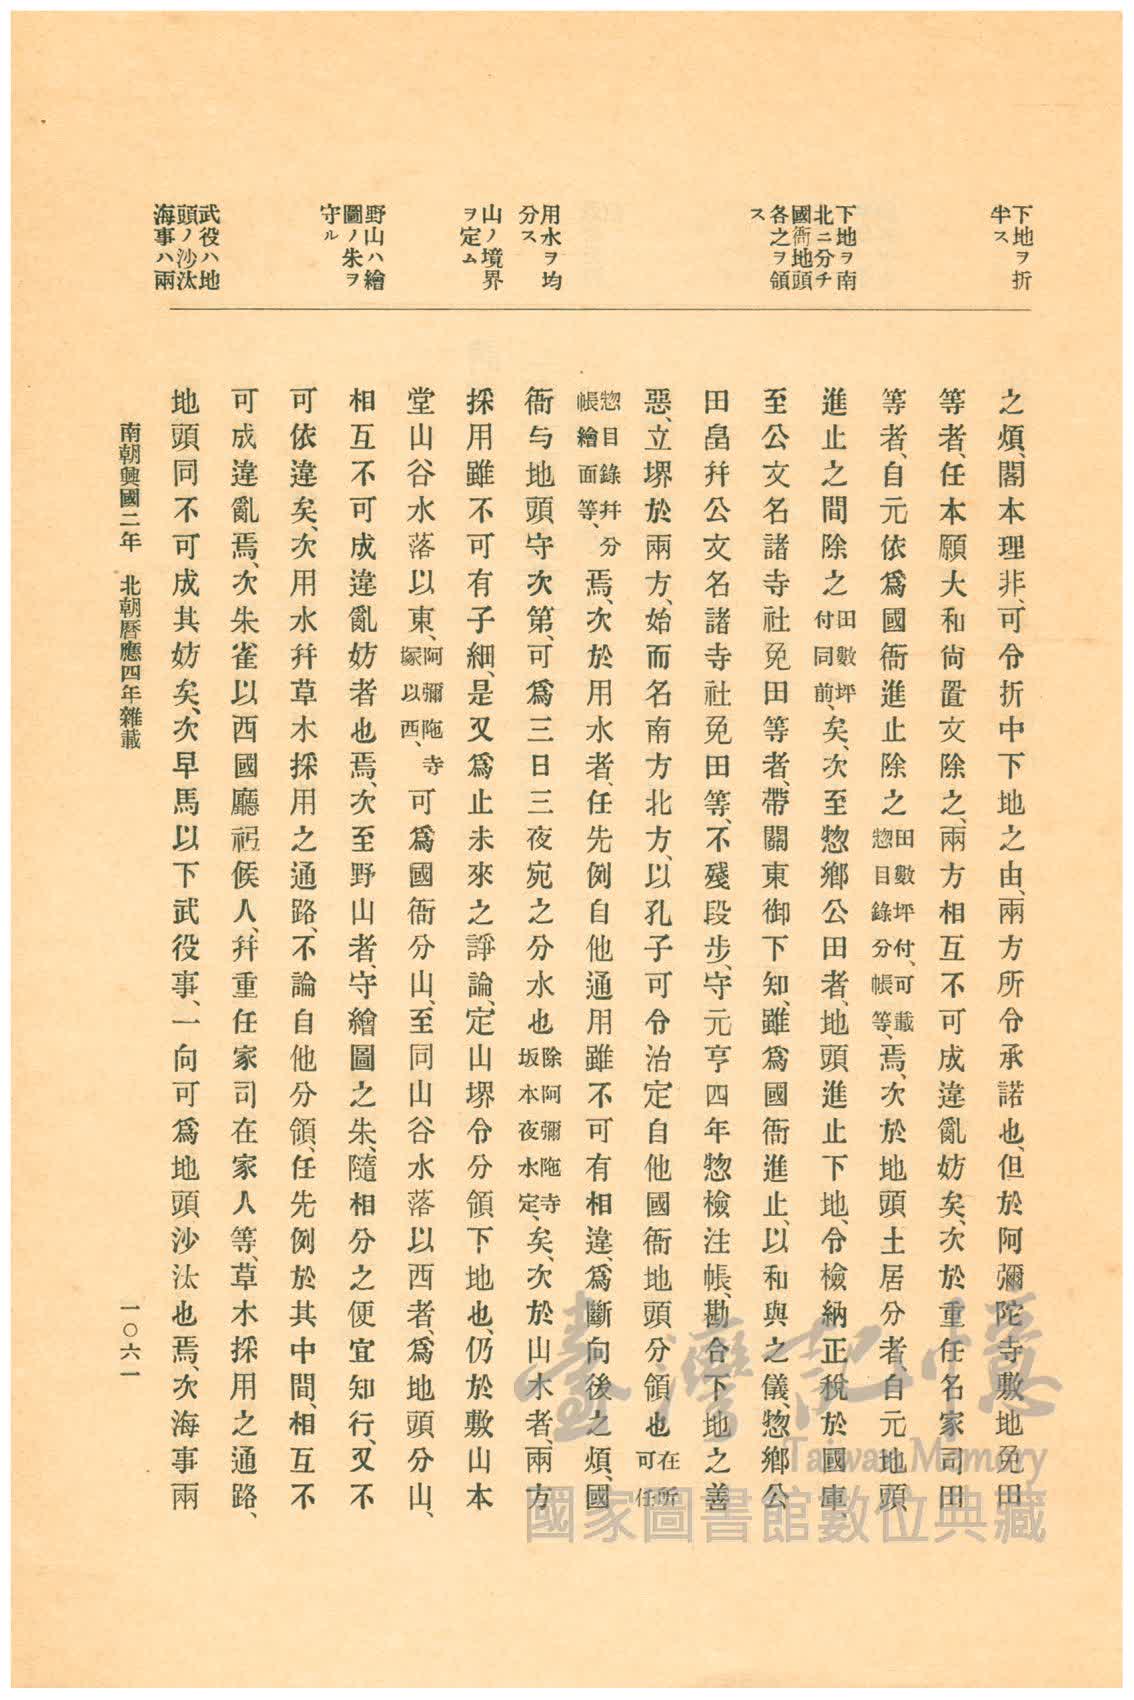 下地ヲ折
半ス
下地ヲ南
北ニ分チ
國衙地頭
各之ヲ領
ス
用水ヲ均
分ス
山ノ境界
ヲ定ム
野山ハ繪
圖ノ朱ヲ
守ル
武役ハ地
頭ノ沙汰
海事ハ兩
之煩、閣本理非、可令折中下地之由、兩方所令承諾也、但於阿彌陀寺敷地免田
等者、任本願大和尙置文除之、兩方相互不可成違亂妨矣、次於重任名家司田
等者、自元依爲國衙進止除之田數坪付、可載惣目錄分帳等、焉、次於地頭土居分者、自元地頭
進止之間除之田數坪付同前、矣、次至惣鄕公田者、地頭進止下地、令檢納正稅於國庫、
至公文名諸寺社免田等者、帶關東御下知、雖爲國衙進止、以和與之儀、惣鄕公
田畠幷公文名諸寺社免田等、不殘段步、守元亨四年惣檢注帳、勘合下地之善
惡、立堺於兩方、始而名南方北方、以孔子可令治定自他國衙地頭分領也在所可任
惣目錄幷分帳繪面等、焉、次於用水者、任先例自他通用雖不可有相違、爲斷向後之煩、國
衙与地頭守次第、可爲三日三夜宛之分水也除阿彌陁寺坂本夜水定、矣、次於山木者、兩方
採用雖不可有子細、是又爲止未來之諍論、定山堺令分領、下地也、仍於敷山本
堂山谷水落以東、阿彌陁寺塚以西、可爲國衙分山、至同山谷水落以西者、爲地頭、分山、
相互不可成違亂妨者也焉、次至野山者、守繪圖之朱、隨相分之便宜知行、又不
可依違矣、次用水幷草木採用之通路、不論自他分領、任先例於其中間、相互不
可成違亂焉、次朱雀以西國廳祗候人、幷重任家司在家人等、草木採用之通路、
地頭同不可成其妨矣、次早馬以下武役事、一向可爲地頭沙汰也焉、次海事兩
南朝興國二年 北朝曆應四年雜載
一〇六一
臺灣記憶
Taiwan Memory
國家圖書館數位典藏